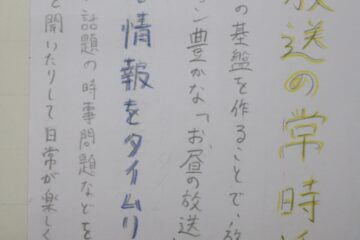 放送の常時
の基盤を作ることで、放
ン豊かな「お昼の放送
情報をタイムリ
話題の時事問題などを
と聞いたりして日常が楽しく